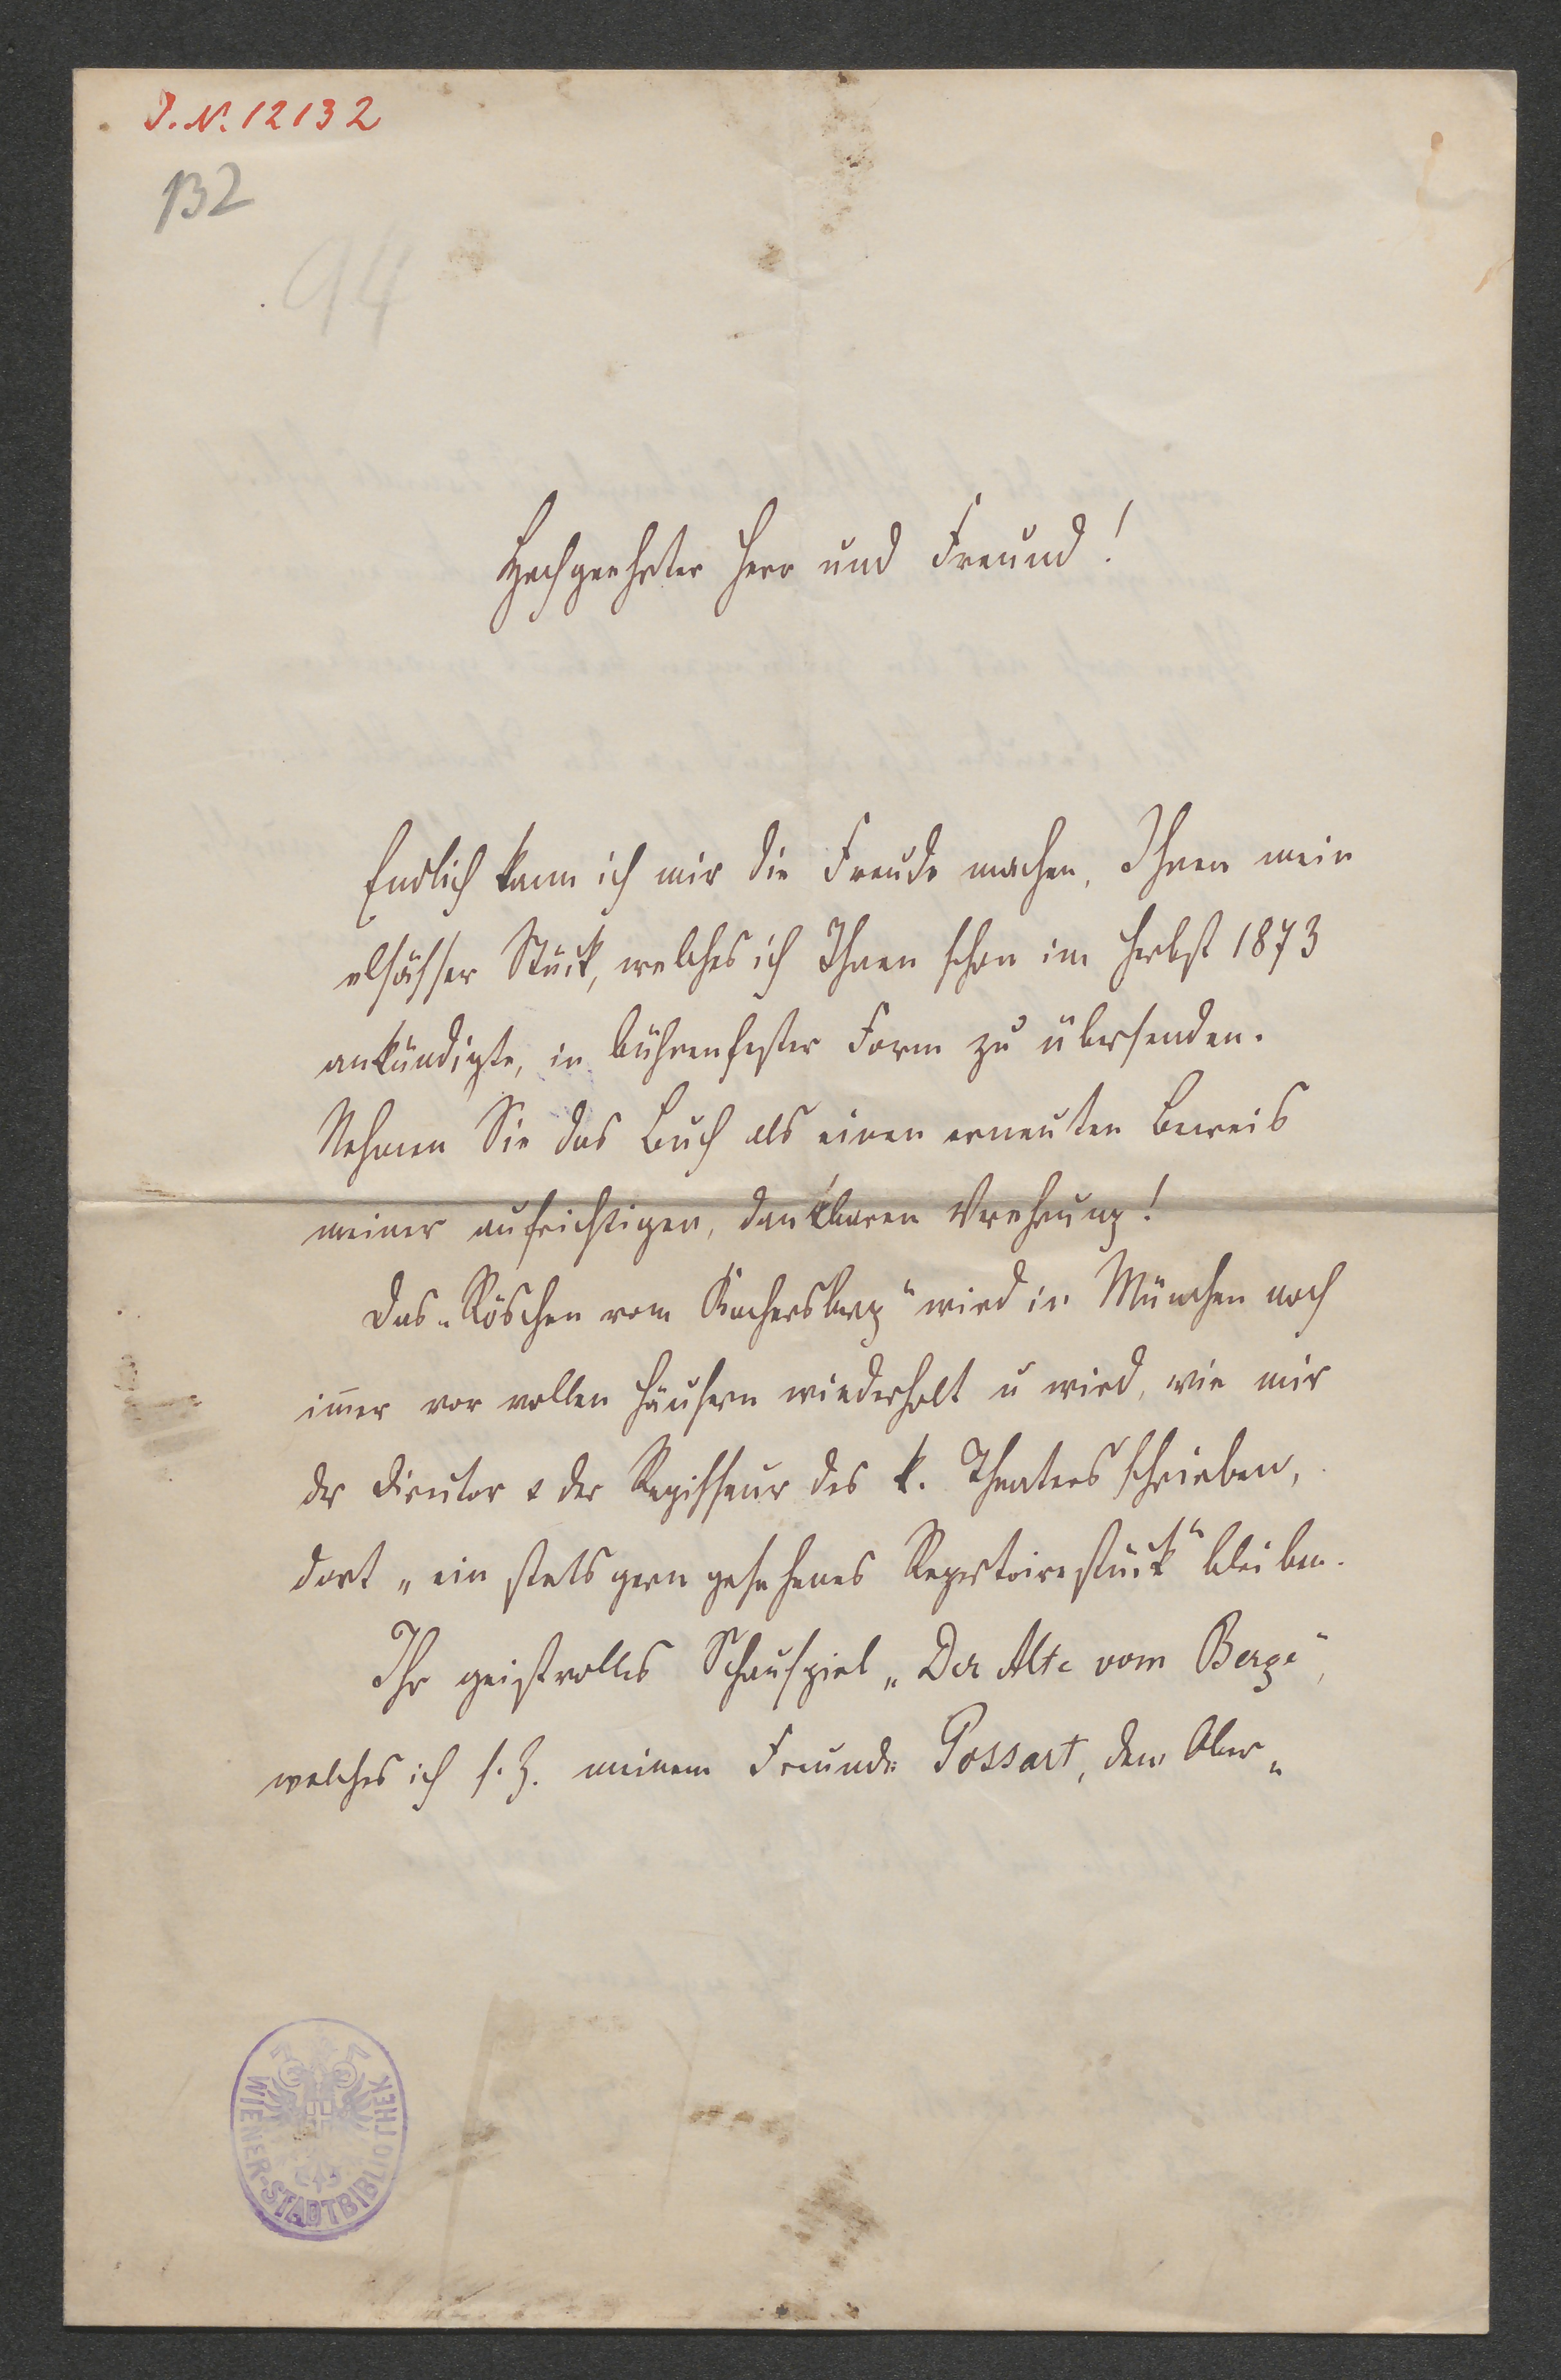 J. N. 12132
132
94
Hochgeehrter Herr und Freund!
Endlich kann ich mir die Freude machen, Ihnen mein
elsässer Stück, welches ich Ihnen schon im Herbst 1873
ankündigte, in bühnenfester Form zu übersenden.
Nehmen Sie das Buch als einen erneuten Beweis
meiner aufrichtigen, dankbaren Verehrung!
Das „Röschen vom Kochersberg" wird in München noch
im̄er vor vollen Häusern wiederholt u wird, wie mir
der Director & der Regisseur des k. Theaters schrieben,
dort „ein stets gern gesehenes Repertoirestück" bleiben.
Ihr geistvolles Schauspiel „Der Alte vom Berge",
welches ich s. Z. meinem Freunde Possart, dem Ober„
WIENER-STADTBIBLIOTHEK